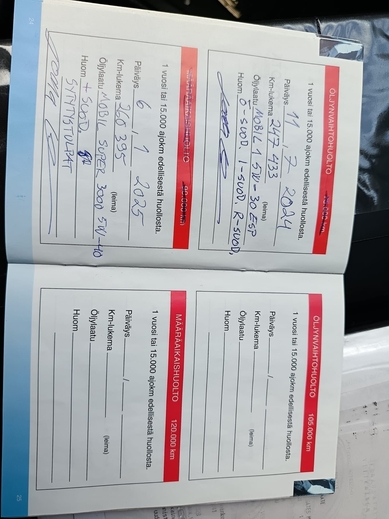 ÖLJYNVAIHTOHUOLTO
1 vuosi tai 15.000 ajokm edellisestä huollosta.
Päiväys 11 . 7 2024
Km-lukema 247 433
(leima)
Öljylaatu MOBIL 1 5W-30 ESP
Huom Ö-SUOD, I-SUOD, R-SUOD,
90.000 km
1 vuosi tai 15.000 ajokm edellisestä huollosta.
Päiväys 6 . 1 2025
Km-lukema 260 395
(leima)
Öljylaatu MOBIL SUPER 3000 5W-40
Huom + SUOD,
SYTYTYSTULPAT
24
ÖLJYNVAIHTOHUOLTO 105.000 km
1 vuosi tai 15.000 ajokm edellisestä huollosta.
Päiväys / 
Km-lukema
(leima)
Öljylaatu
Huom
MÄÄRÄAIKAISHUOLTO 120.000 km
1 vuosi tai 15.000 ajokm edellisestä huollosta.
Päiväys /
Km-lukema
(leima)
Öljylaatu
Huom
25